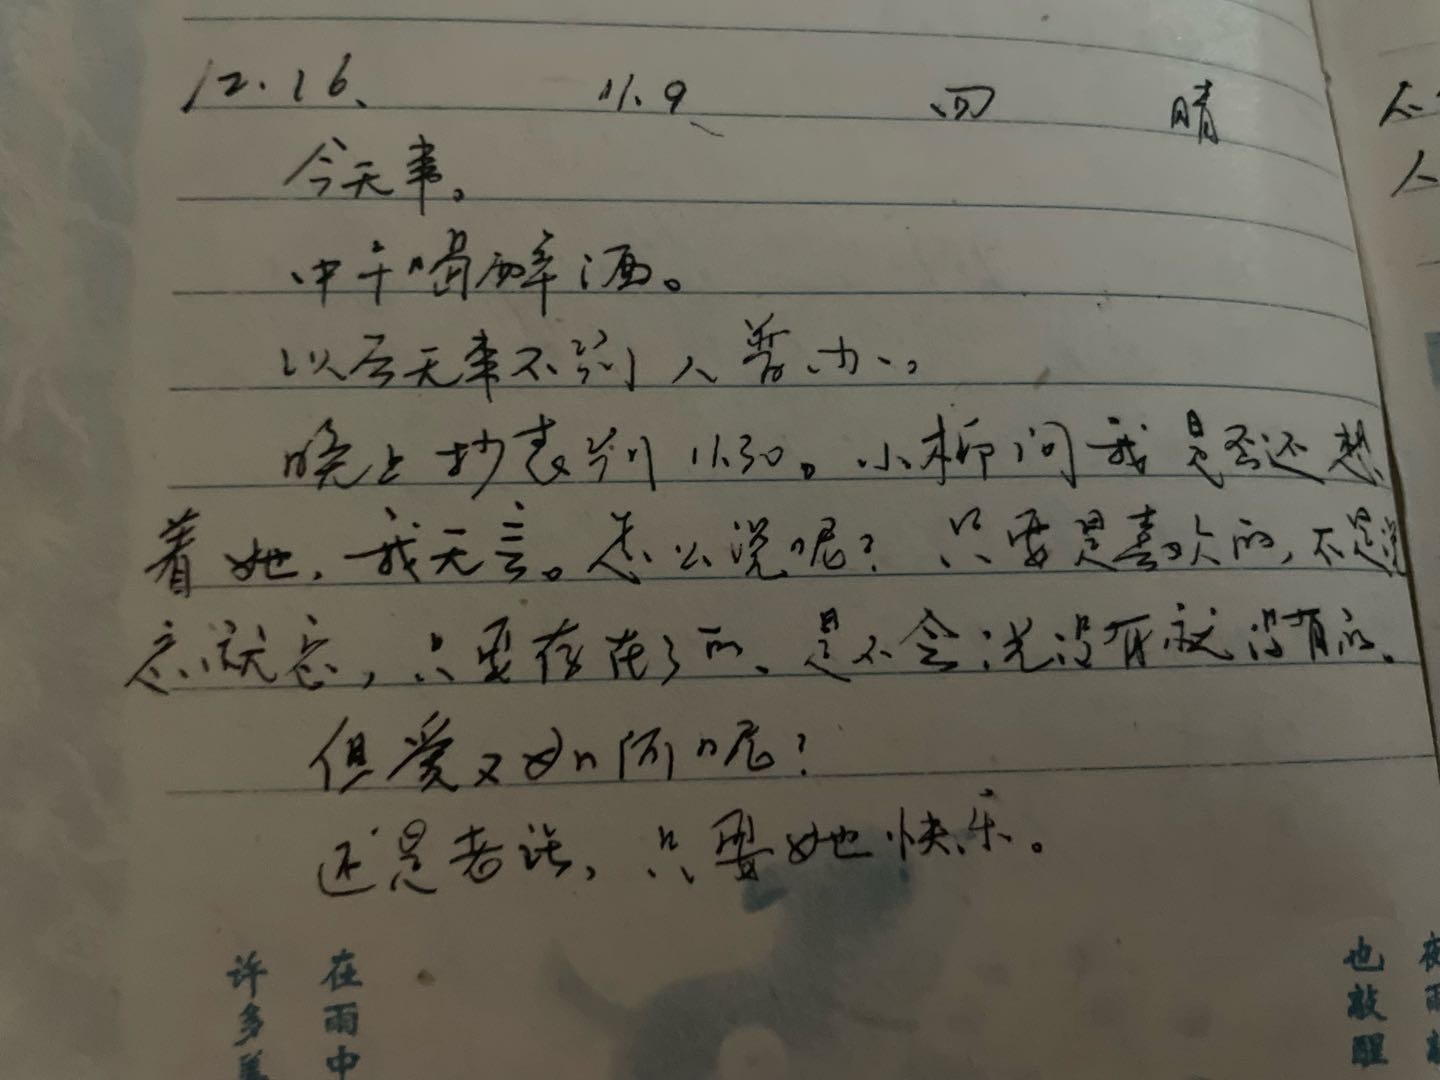 12.16、 11.9 四 晴
今天事。
中午喝醉酒。
以后无事不别人帮办。
晚上抄表到11:30。小柳问我是否还想
着她，我无言。怎么说呢？只要是喜欢的，不是说
忘就忘，只要存在了的、是不会说没有就没有的。
但爱又如何呢？
还是老话，只要她快乐。
在雨中
许多
也敲醒
夜雨
不
人